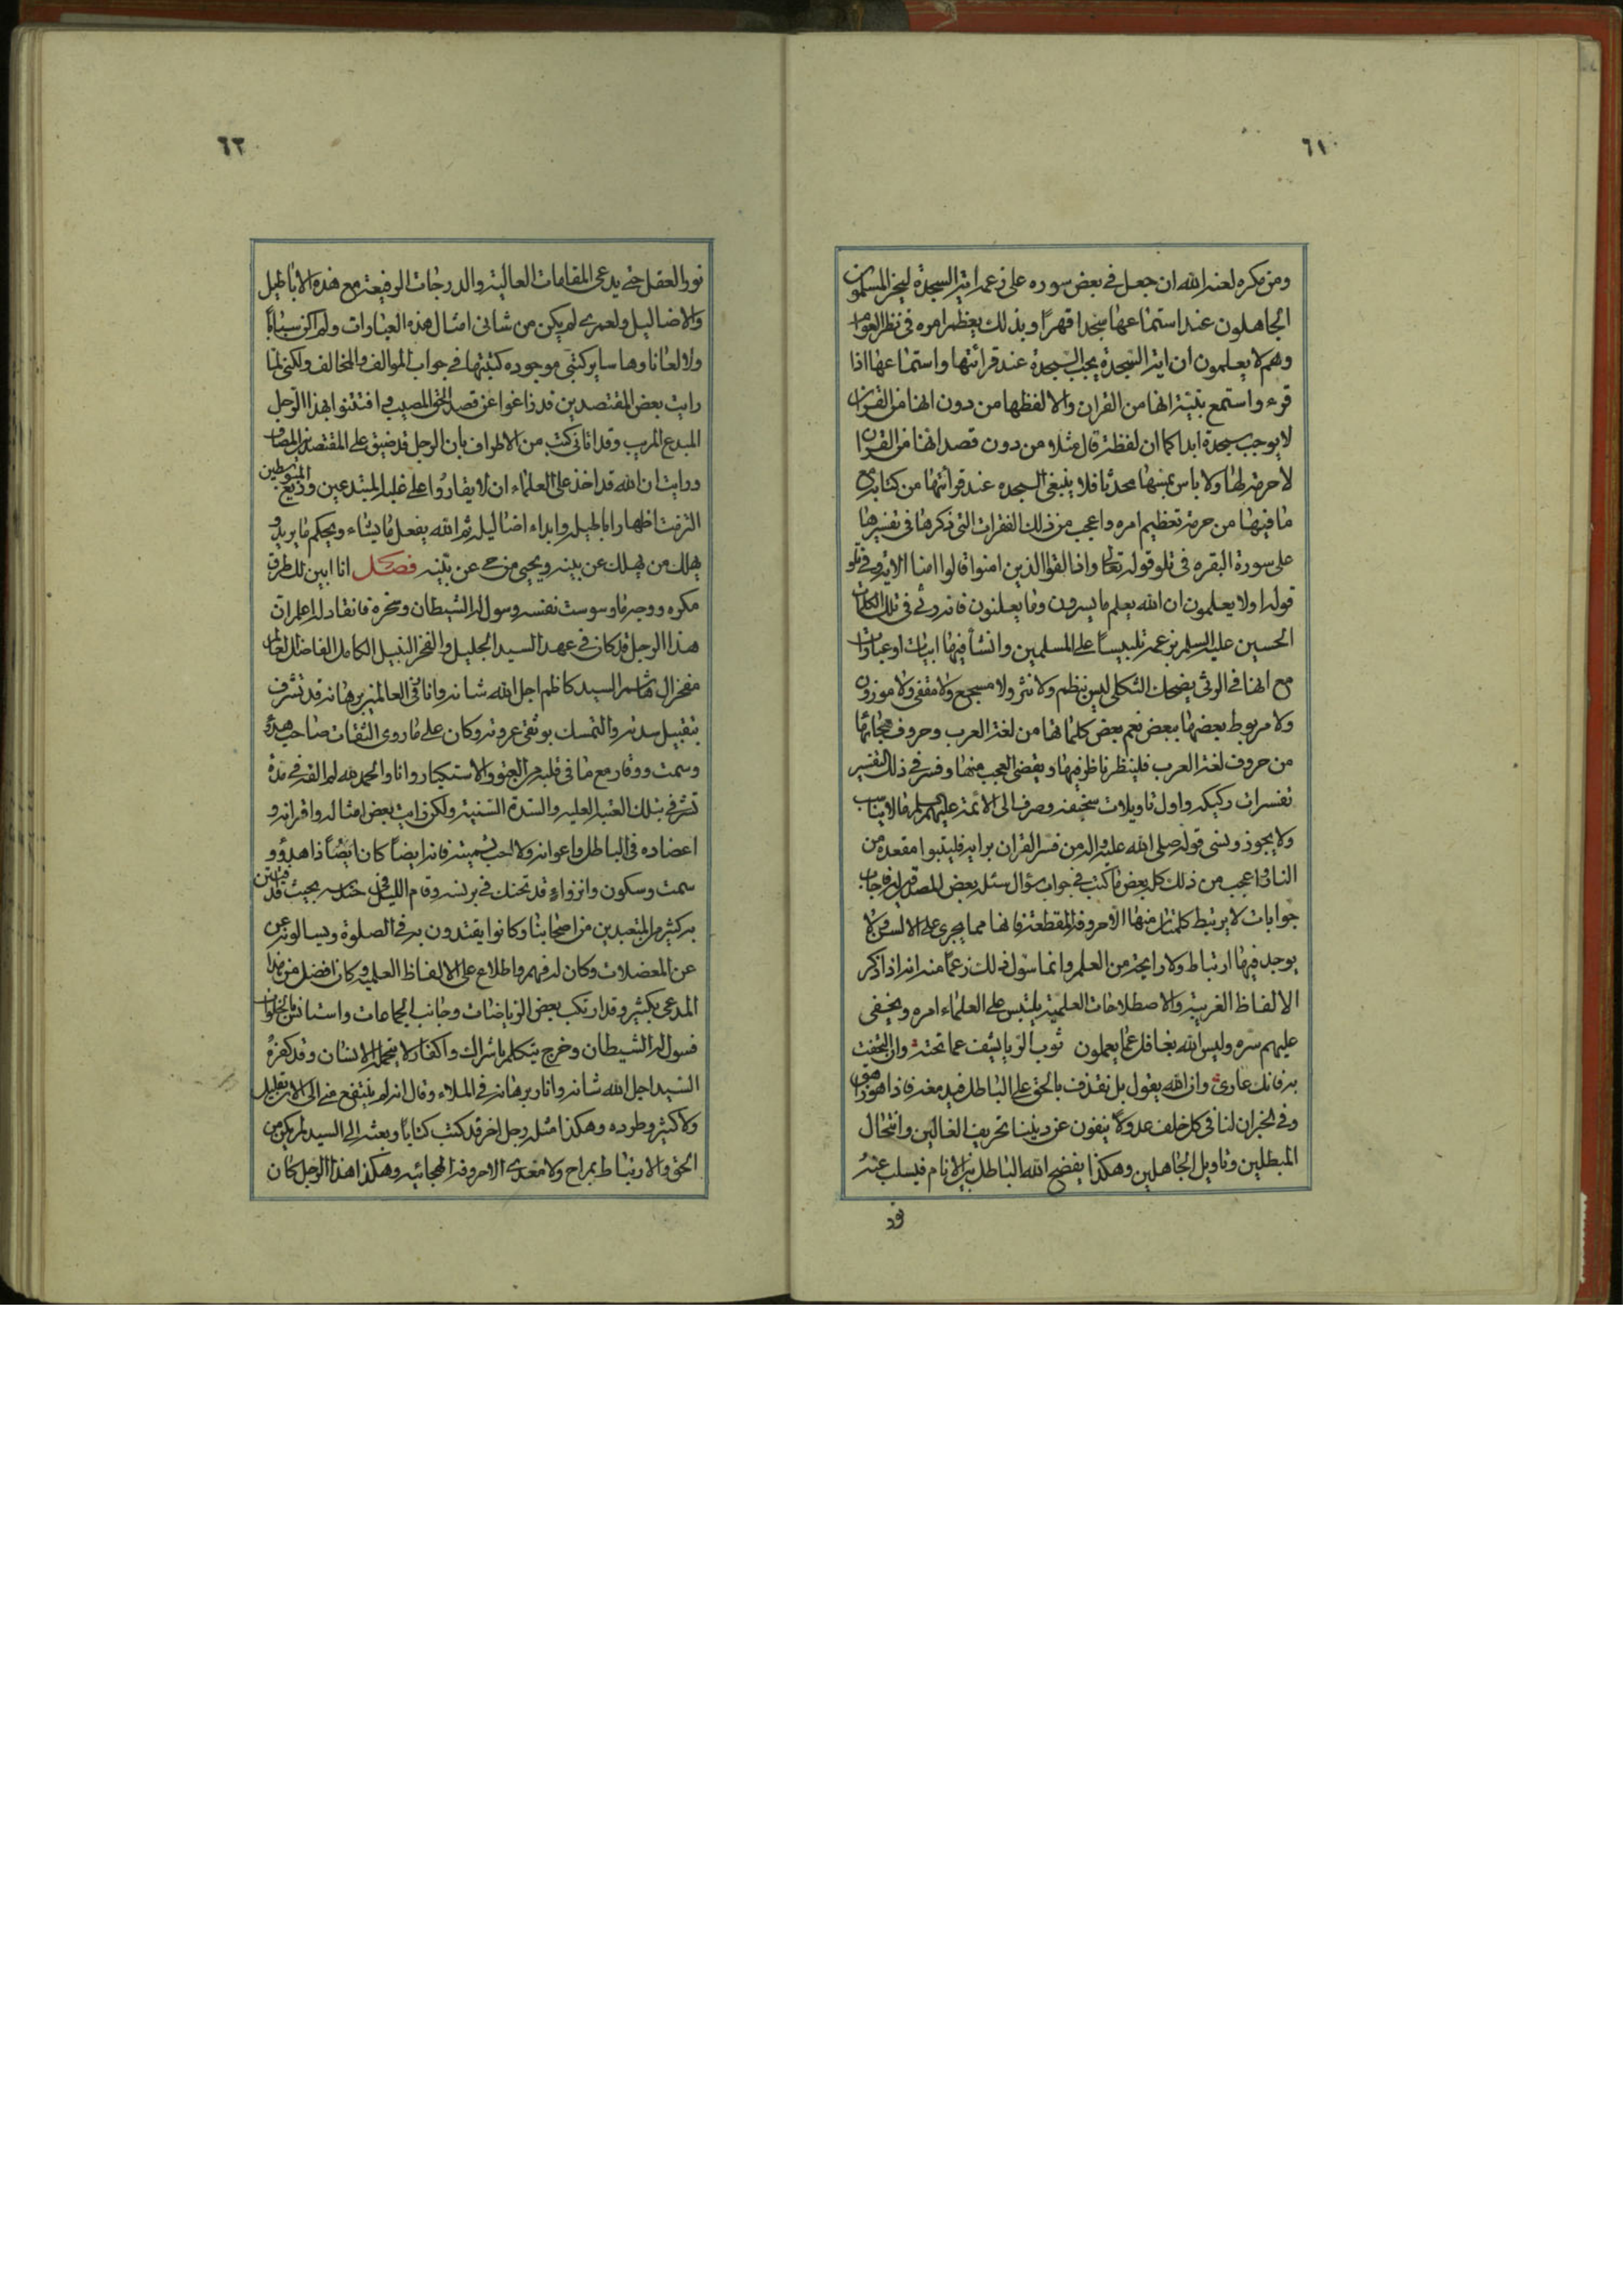 ٦١
ومن مكره لعنه الله ان جعل في بعض سوره على زعمه اية السجدة ليخر المسلمون
الجاهلون عند استماعها سجدا قهرًا وبذلك يعظم امره في نظر العوام
وهم لا يعلمون ان اية السجدة يجب السجدة عند قرائتها واستماعها اذا
قرء واستمع بنية انها من القران والا لفظها من دون انها من القران
لا يوجب سجدة ابدا كما ان لفظة قال مثلا من دون قصد انها من القران
لا حرمة لها ولا باس بمسها محدثا فلا ينبغي السجده عند قرائتها من كتابه مع
ما فيها من حرمة تعظيم امره واعجب من ذلك الفقرات التي ذكرها في تفسيرها
على سورة البقره في تلو قوله تعالى واذا لقوا الذين امنوا قالوا امنا الاية وفي تلو
قوله اولا يعلمون ان الله يعلم ما يسرون وما يعلنون فانه رثى في تلك الكلمات
الحسين عليه السلم بزعمه تلبيسًا على المسلمين وانشأ فيها ابيات او عبارات
مع انها في الرثى يضحك الثكلى ليس بنظم ولا نثر ولا مسجع ولا مقفى ولا موزون
ولا مربوط بعضها ببعض نعم بعض كلماتها من لغة العرب وحروف هجائها
من حروف لغة العرب فلينظر ناظر فيها ويقضى العجب منها وفسر في ذلك التفسير
تفسيرات ركيكه واول تاويلات سخيفه وصرف الى الائمة عليهم السلم ما لا يناسب
ولا يجوز ونسى قوله صلى الله عليه واله من فسر القران برايه فليتبوا مقعده من
النار واعجب من ذلك كله بعض ما كتب في جواب سؤال سئله بعض المصدقين له فاجاب
جوابات لا يرتبط كلمتان منها الا حروفه المقطعة فانها مما يجرى على الالسن ولا
يوجد فيها ارتباط ولا رايحة من العلم وانما سول ذلك زعمًا منه انه اذا ذكر
الالفاظ الغريبة والاصطلاحات العلمية يلتبس على العلماء امره ويخفى
عليهم سره وليس الله بغافل عما يعملون ثوب الريا يشف عما تحته وان التحفت
به فانك عارى وان الله يقول بل نقذف بالحق على الباطل فيدمغه فاذا هو زاهق
وفي الخبر ان لنا في كل خلف عدولًا ينفون عن ديننا تحريف الغالين وانتحال
المبطلين وتاويل الجاهلين وهكذا يفضح الله الباطل بين الانام فيسلب عنه
نور
٦٢
نور العقل حتى يدعى المقامات العالية والدرجات الرفيعة مع هذه الاباطيل
والاضاليل ولعمرى لم يكن من شانى امثال هذه العبارات ولم اكن سبابًا
ولا لعانا وها ساير كتبى موجوده كتبتها في جواب الموالف والمخالف ولكنى لما
رايت بعض المقتصدين قد زاغوا عن قصد الحق المصيب وافتتنوا بهذا الرجل
المبدع المريب وقد اتانى كتب من الاطراف بان الرجل قد ضيق على المقتصدين المضاف
ورايت ان الله قد اخذ على العلماء ان لا يقاروا على غلبة المبتدعين وزيغ المتوسطين
التزمت اظهار اباطيله وابداء اضاليله ثم الله يفعل ما يشاء ويحكم ما يريد
يهلك من يهلك عن بينه ويحيى من حى عن بينه فصل انا ابين لك طرق
مكره ووجه ما وسوست نفسه وسول له الشيطان وسخره فانقاد له اعلم ان
هذا الرجل قد كان في عهد السيد الجليل والفخر النبيل الكامل الفاضل العالم
مفخر ال هاشم السيد كاظم اجل الله شانه وانار في العالمين برهانه قد تشرف
بتقبيل سدته والتمسك بوثقى عروته وكان على ما روى الثقات صاحب هدؤ
وسمت ووقار مع ما في قلبه من العتو والاستكبار وانا والحمد لله لم القه في مدة
تشرفي بتلك العتبة العليه والسدة السنية ولكن رايت بعض امثاله واقرانه و
اعضاده في الباطل واعوانه ولا احب تسميته فانه ايضًا كان ايضًا ذا هدؤ و
سمت وسكون وانزواء قد تحنك في برنسه وقام الليل في حندسه بحيث قد فتتن
به كثير من المتعبدين من اصحابنا وكانوا يقتدون به في الصلوة ويسالونه عن
عن المعضلات وكان له فهم واطلاع على الالفاظ العلميه وكان افضل من هذا
المدعى بكثير وقد ارتكب بعض الرياضات وجانب الجماعات واستانس بالخلوات
فسول له الشيطان وخرج يتكلم باشراك واكفار لا يتحمله الانسان وقد كفره
السيد اجل الله شانه وانار برهانه في الملاء وقال انه لم ينتفع منى الى الان بقليل
ولا كثير وطرده وهكذا مثله رجل اخر قد كتب كتابًا وبعثه الى السيد لم يكن من
الحق والارتباط بمراح ولا مغدى الا حروفه الهجائيه وهكذا هذا الرجل كان